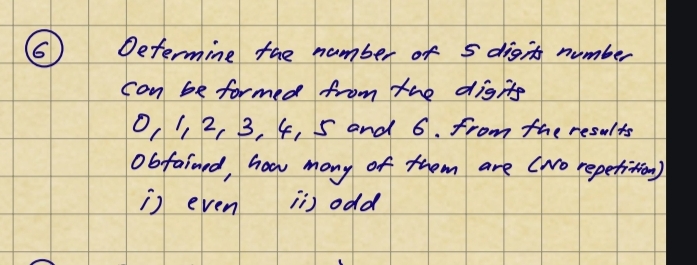 6 Determine the number of 5 digits number
can be formed from the digits
0, 1, 2, 3, 4, 5 and 6. from the results
Obtained, how many of them are (No repetition)
i) even ii) odd